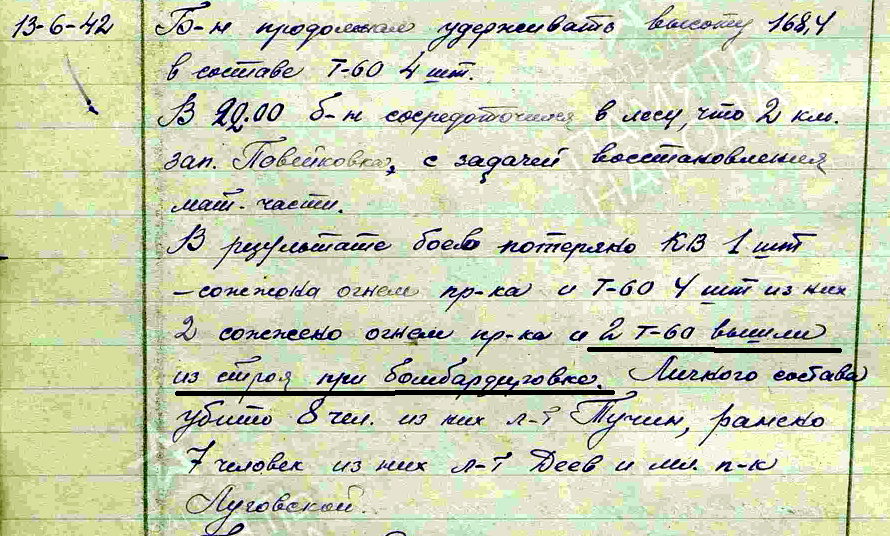 13-6-42 Б-н продолжал удерживать высоту 168,4
в составе Т-60 4 шт.
В 22.00 б-н сосредоточился в лесу, что 2 км.
зап. Повейковка, с задачей восстановления
мат. части.
В результате боев потеряно КВ 1 шт
– сожжона огнем пр-ка и Т-60 4 шт из них
2 сожжено огнем пр-ка и 2 Т-60 вышли
из строя при бомбардировке. Личного состава
убито 8 чел. из них л-т Тучин, ранено
7 человек из них л-т Деев и мл. п-к
Луговской.
ПАМЯТЬ
НАРОДА